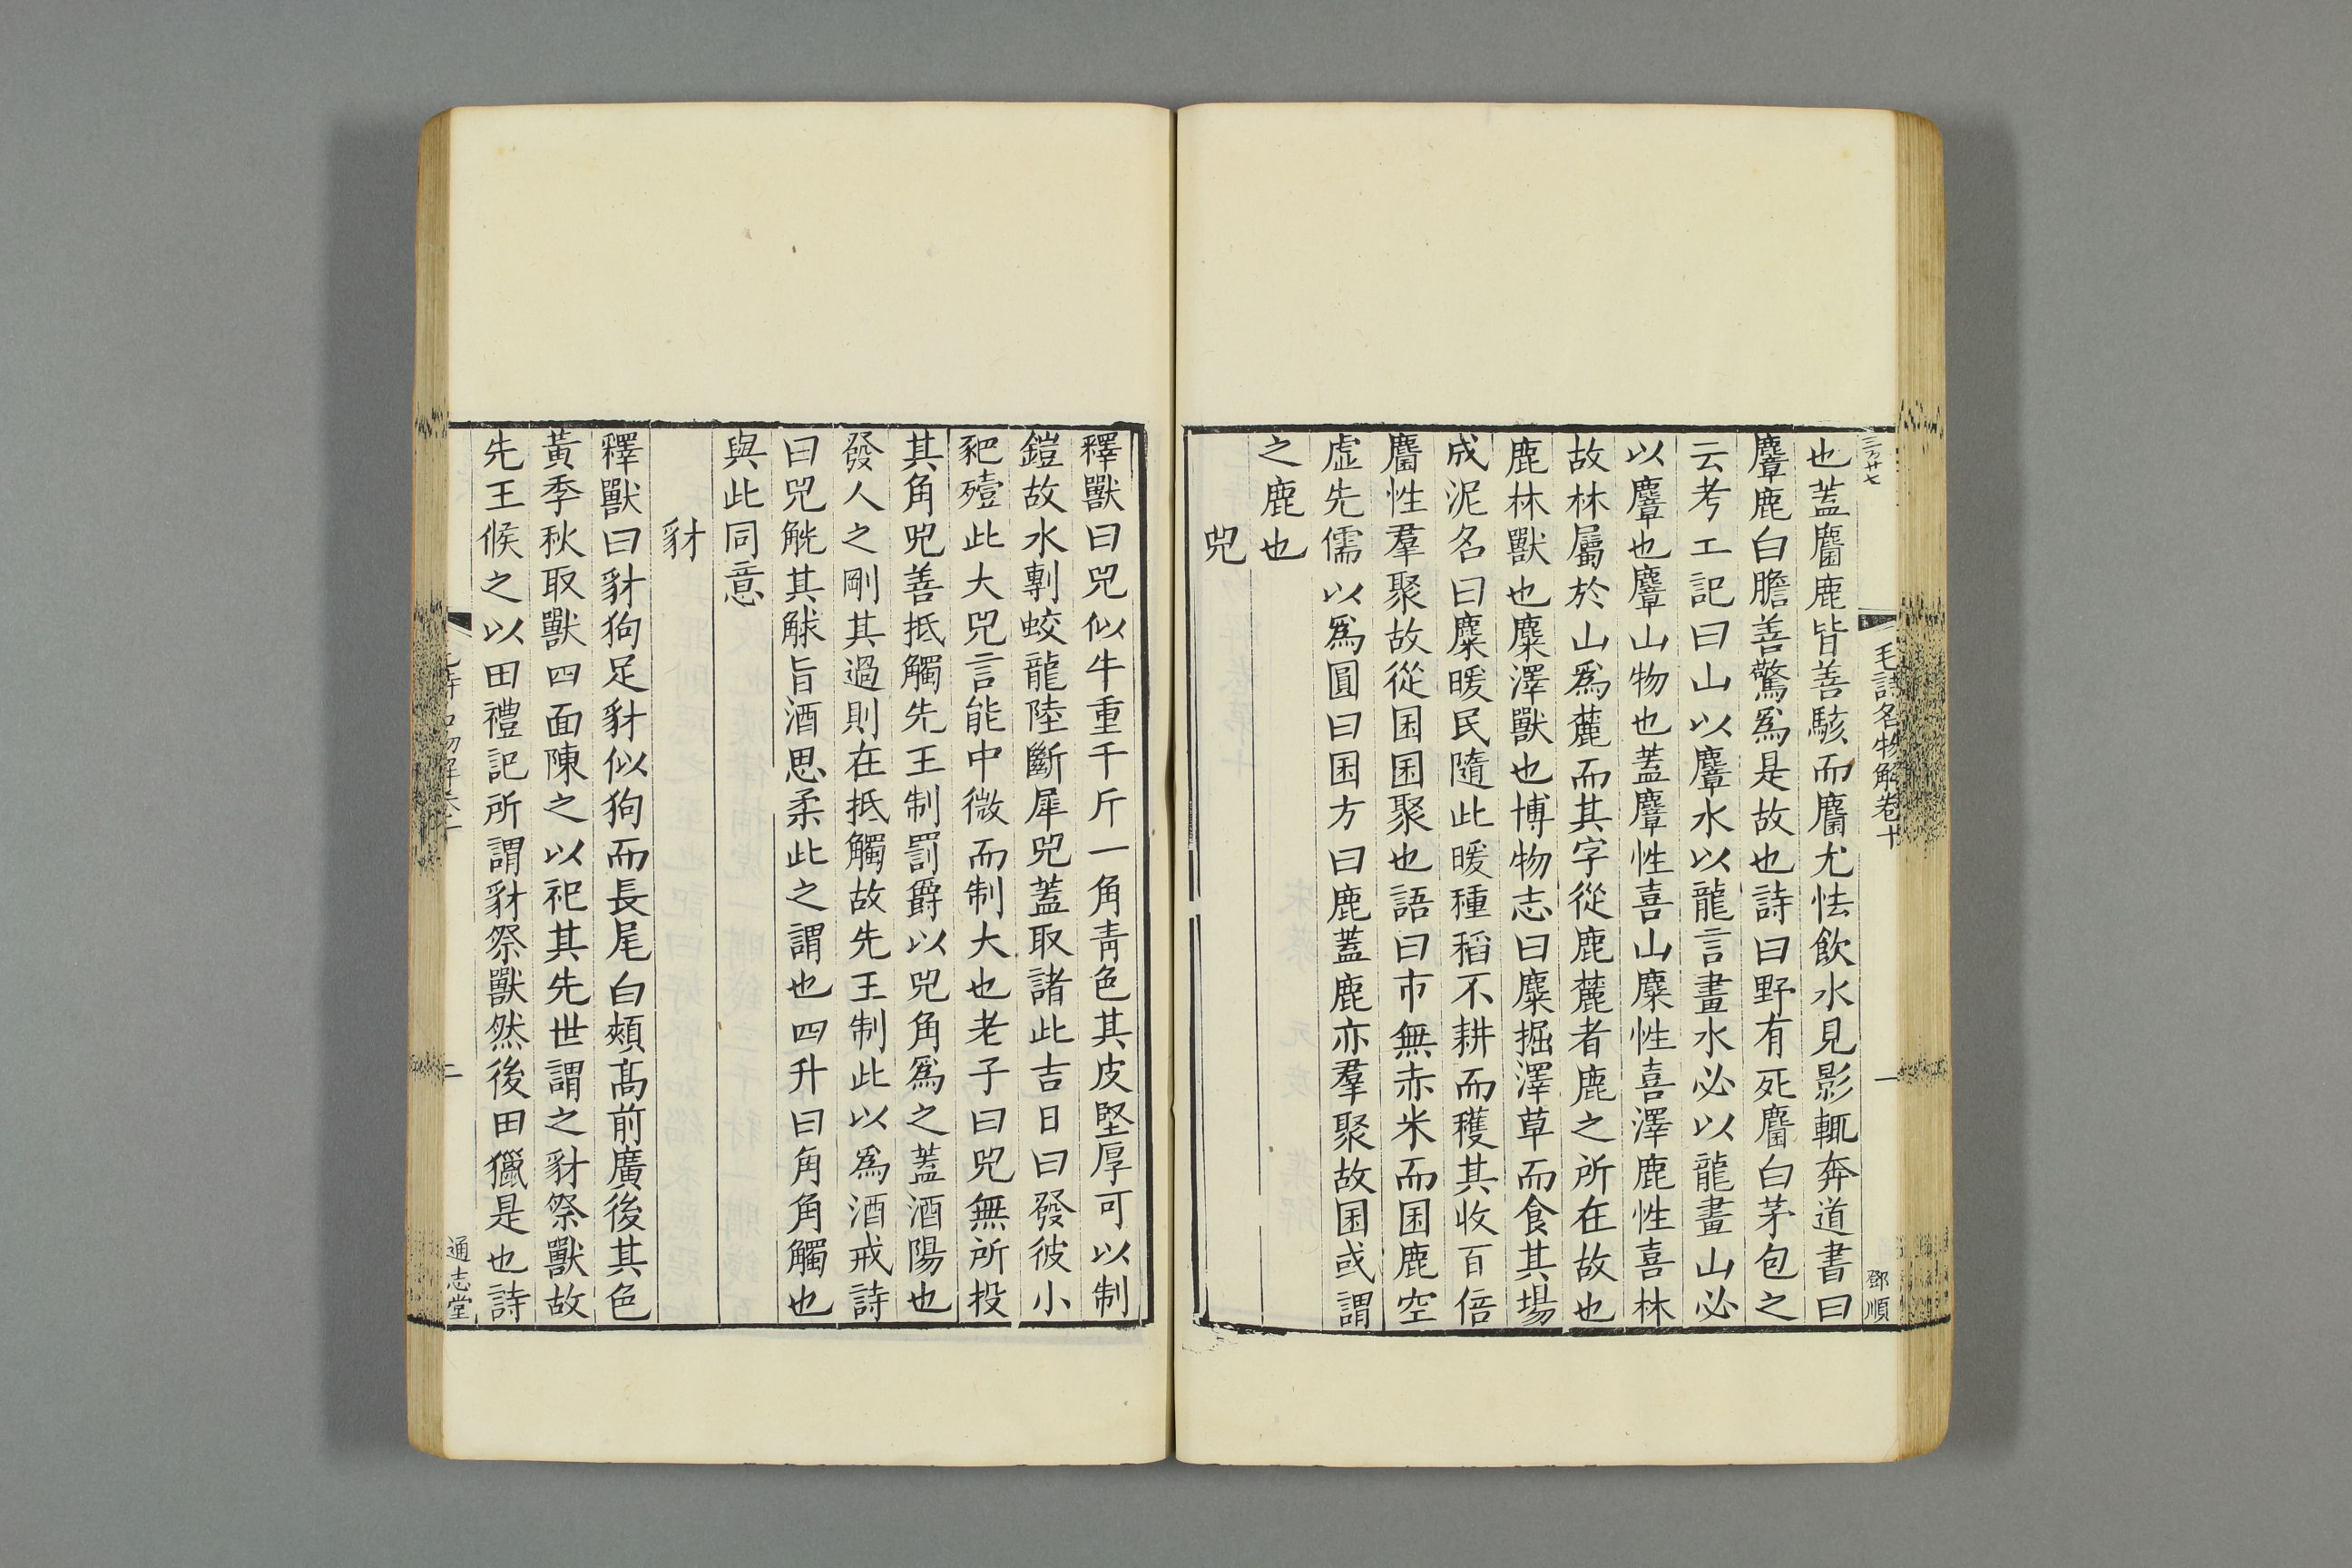 三百廿七
毛詩名物解卷十
一
鄧順
也蓋麕鹿皆善駭而麕尤怯飲水見影輒奔道書曰
麞鹿白膽善驚爲是故也詩曰野有死麕白茅包之
云考工記曰山以麞水以龍言畫水必以龍畫山必
以麞也麞山物也蓋麞性喜山麋性喜澤鹿性喜林
故林屬於山爲麓而其字從鹿麓者鹿之所在故也
鹿林獸也麋澤獸也博物志曰麋掘澤草而食其場
成泥名曰麋暖民隨此暖種稻不耕而穫其收百倍
麕性羣聚故從囷囷聚也語曰市無赤米而囷鹿空
虛先儒以爲圓曰囷方曰鹿蓋鹿亦羣聚故囷或謂
之鹿也
兕
釋獸曰兕似牛重千斤一角靑色其皮堅厚可以制
鎧故水剸蛟龍陸斷犀兕蓋取諸此吉日曰發彼小
豝殪此大兕言能中微而制大也老子曰兕無所投
其角兕善抵觸先王制罰爵以兕角爲之蓋酒陽也
發人之剛其過則在抵觸故先王制此以爲酒戒詩
曰兕觥其觩旨酒思柔此之謂也四升曰角角觸也
與此同意
豺
釋獸曰豺狗足豺似狗而長尾白頰髙前廣後其色
黃季秋取獸四面陳之以祀其先世謂之豺祭獸故
先王候之以田禮記所謂豺祭獸然後田獵是也詩
二
通志堂